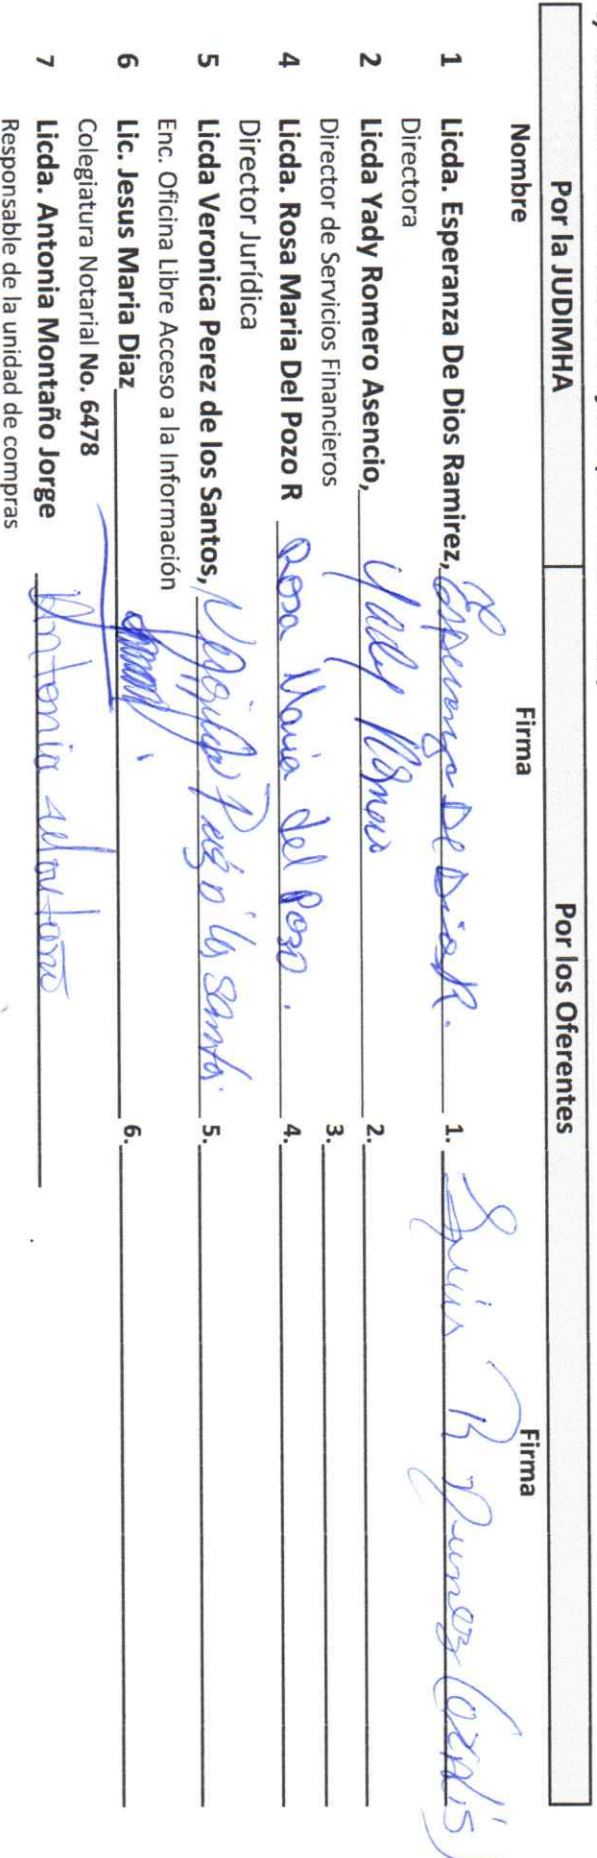 Por la JUDIMHA Por los Oferentes
Nombre Firma Firma
1 Licda. Esperanza De Dios Ramirez, Esperanza De Dios R. 1. Luis R
Directora
2 Licda Yady Romero Asencio, Yady Romero 2.
Director de Servicios Financieros 3.
4 Licda. Rosa Maria Del Pozo R Rosa Maria del Pozo. 4.
Director Jurídica
5 Licda Veronica Perez de los Santos, 5.
Enc. Oficina Libre Acceso a la Información
6 Lic. Jesus Maria Diaz 6.
Colegiatura Notarial No. 6478
7 Licda. Antonia Montaño Jorge Antonia Montaño
Responsable de la unidad de compras